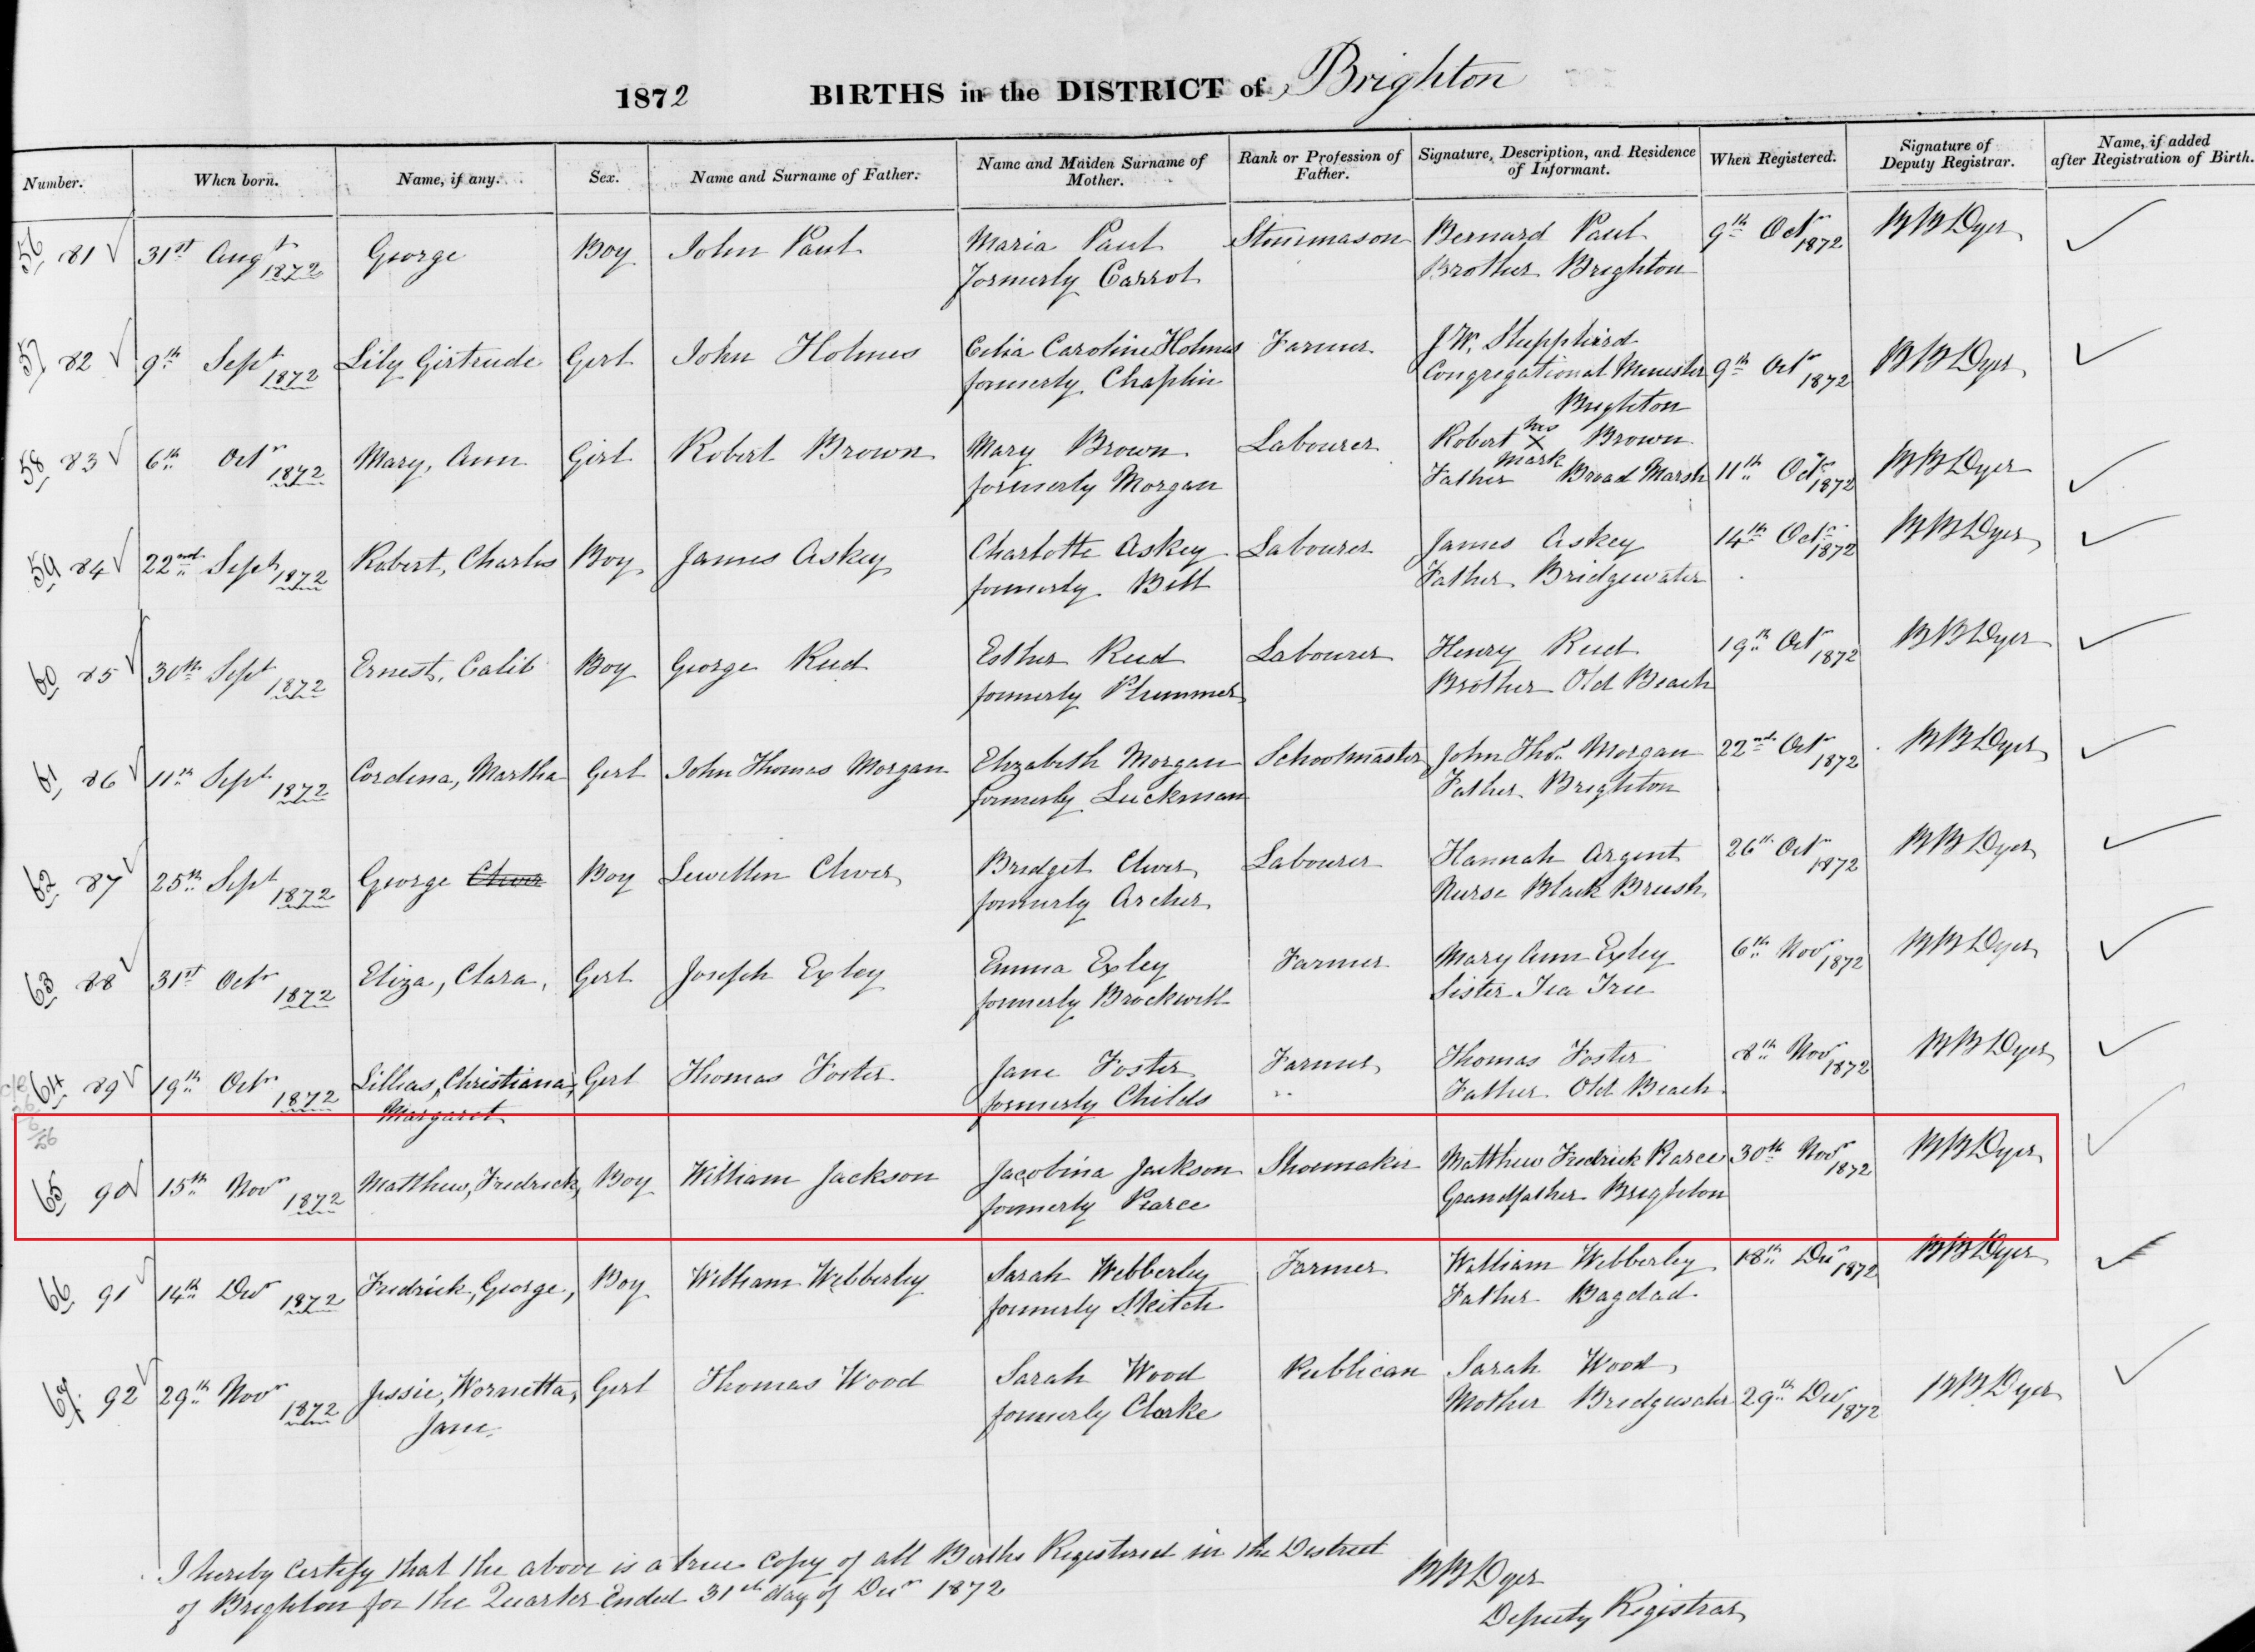 1872 BIRTHS in the DISTRICT of Brighton
Number. When born. Name, if any. Sex. Name and Surname of Father. Name and Maiden Surname of Mother. Rank or Profession of Father. Signature, Description, and Residence of Informant. When Registered. Signature of Deputy Registrar. Name, if added after Registration of Birth.
56 81 31st Augt 1872 George Boy John Paul Maria Paul Stonemason Bernard Paul 9th Octr 1872 BBDyer
formerly Carrol Brother Brighton
57 82 9th Sept 1872 Lily Girtrude Gerl John Holmes Celia Caroline Holmes Farmer J.W. Shepphird 9th Octr 1872 BBDyer
formerly Chaplin Congregational Minister
Brighton
58 83 6th Octr 1872 Mary, Ann Girl Robert Brown Mary Brown Labourer Robert his X mark Brown 11th Octr 1872 BBDyer
formerly Morgan Father Broad Marsh
59 84 22nd Sept 1872 Robert, Charles Boy James Askey Charlotte Askey Labourer James Askey 14th Octr 1872 BBDyer
formerly Bell Father Bridgewater
60 85 30th Sept 1872 Ernest, Calib Boy George Reed Esther Reed Labourer Henry Reed 19th Octr 1872 BBDyer
formerly Plummer Brother Old Beach
61 86 11th Sept 1872 Cordena, Martha Gerl John Thomas Morgan Elizabeth Morgan Schoolmaster John Thos. Morgan 22nd Octr 1872 BBDyer
formerly Luckman Father Brighton
62 87 25th Sept 1872 George Boy Lewellin Cliver Bridget Cliver Labourer Hannah Argent 26th Octr 1872 BBDyer
formerly Archer Nurse Black Brush
63 88 31st Octr 1872 Eliza, Clara, Gerl Joseph Exley Emma Exley Farmer Mary Ann Exley 6th Novr 1872 BBDyer
formerly Brockwell Sister Tea Tree
64 89 19th Octr 1872 Lillias, Christiana, Gerl Thomas Foster Jane Foster Farmer Thomas Foster 8th Novr 1872 BBDyer
Margaret formerly Childs Father Old Beach
65 90 15th Novr 1872 Matthew, Fredrick, Boy William Jackson Jacobina Jackson Shoemaker Matthew Fredrick Pearce 30th Novr 1872 BBDyer
formerly Pearce Grandfather Brighton
66 91 14th Decr 1872 Fredrick, George, Boy William Webberley Sarah Webberley Farmer William Webberley 18th Decr 1872 BBDyer
formerly Skeitch Father Bagdad
67 92 29th Novr 1872 Jessie, Wornetta, Gerl Thomas Wood Sarah Wood Publican Sarah Wood 29th Decr 1872 BBDyer
Jane formerly Clarke Mother Bridgewater
I hereby certify that the above is a true copy of all Births Registered in the District
of Brighton for the Quarter ended 31st day of Decr 1872
BBDyer
Deputy Registrar